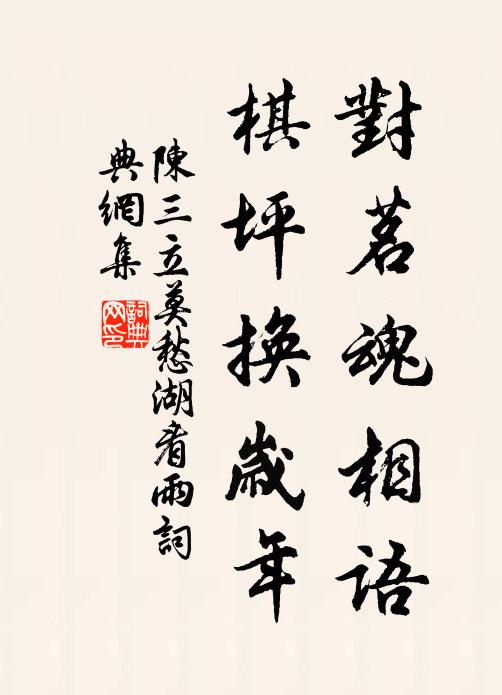 對茗魂相語
棋坪換歲年
陳三立莫愁湖看雨詞
典網集
詞典
网印